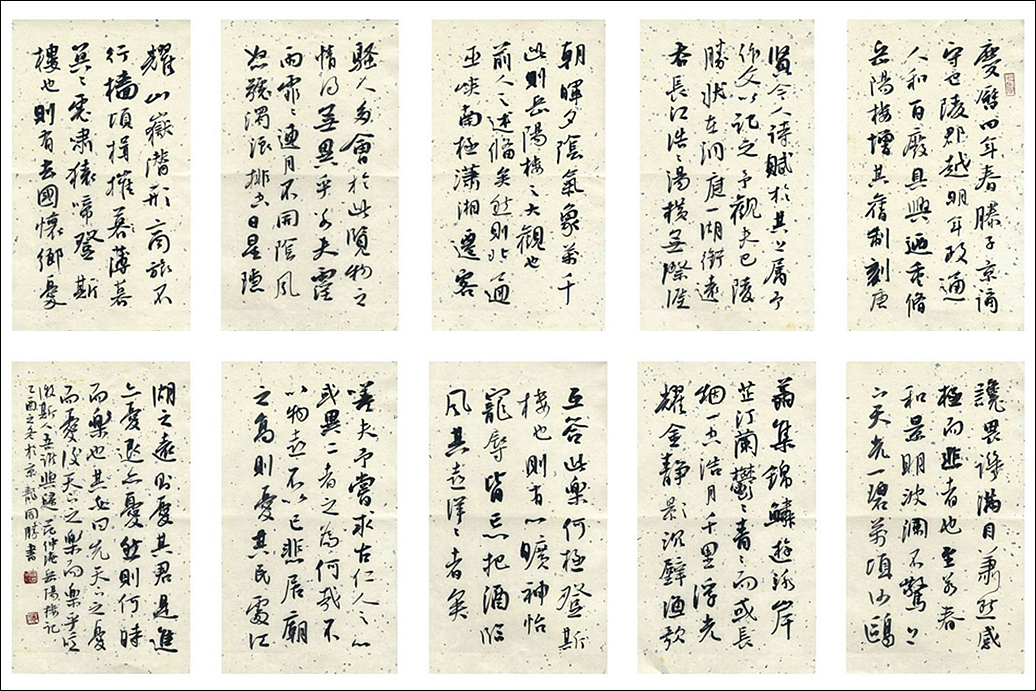 慶曆四年春滕子京謫
守巴陵郡越明年政通
人和百廢具興迺重修
岳陽樓增其舊制刻唐
賢今人詩賦於其上屬予
作文以記之予觀夫巴陵
勝狀在洞庭一湖銜遠
吞長江浩〻湯橫無際涯
朝暉夕陰氣象萬千
此則岳陽樓之大觀也
前人之述備矣然則北通
巫峽南極瀟湘遷客
騷人多會於此覽物之
情得無異乎若夫霪
雨霏〻連月不開陰風
怒號濁浪排空日星隱
耀山嶽潛形商旅不
行檣傾楫摧暮薄暮
冥〻虎嘯猿啼登斯
樓也則有去國懷鄉憂
讒畏譏滿目蕭然感
極而悲者也至若春
和景明波瀾不驚上
下天光一碧萬頃沙鷗
翕集錦鱗游泳岸
芷汀蘭鬱〻青〻而或長
烟一空浩月千里浮光
耀金靜影沉璧漁歌
互答此樂何極登斯
樓也則有心曠神怡
寵辱皆忘把酒臨
風其喜洋〻者矣
嗟夫予嘗求古仁人之心
或異二者之為何哉不
以物喜不以己悲居廟
之高則憂其民處江
湖之遠則憂其君是進
亦憂退亦憂然則何時
而樂也其必曰先天下之憂
而憂後天下之樂而樂乎噫
微斯人吾誰與歸范仲淹岳陽樓記
乙酉之冬於京龍開勝書